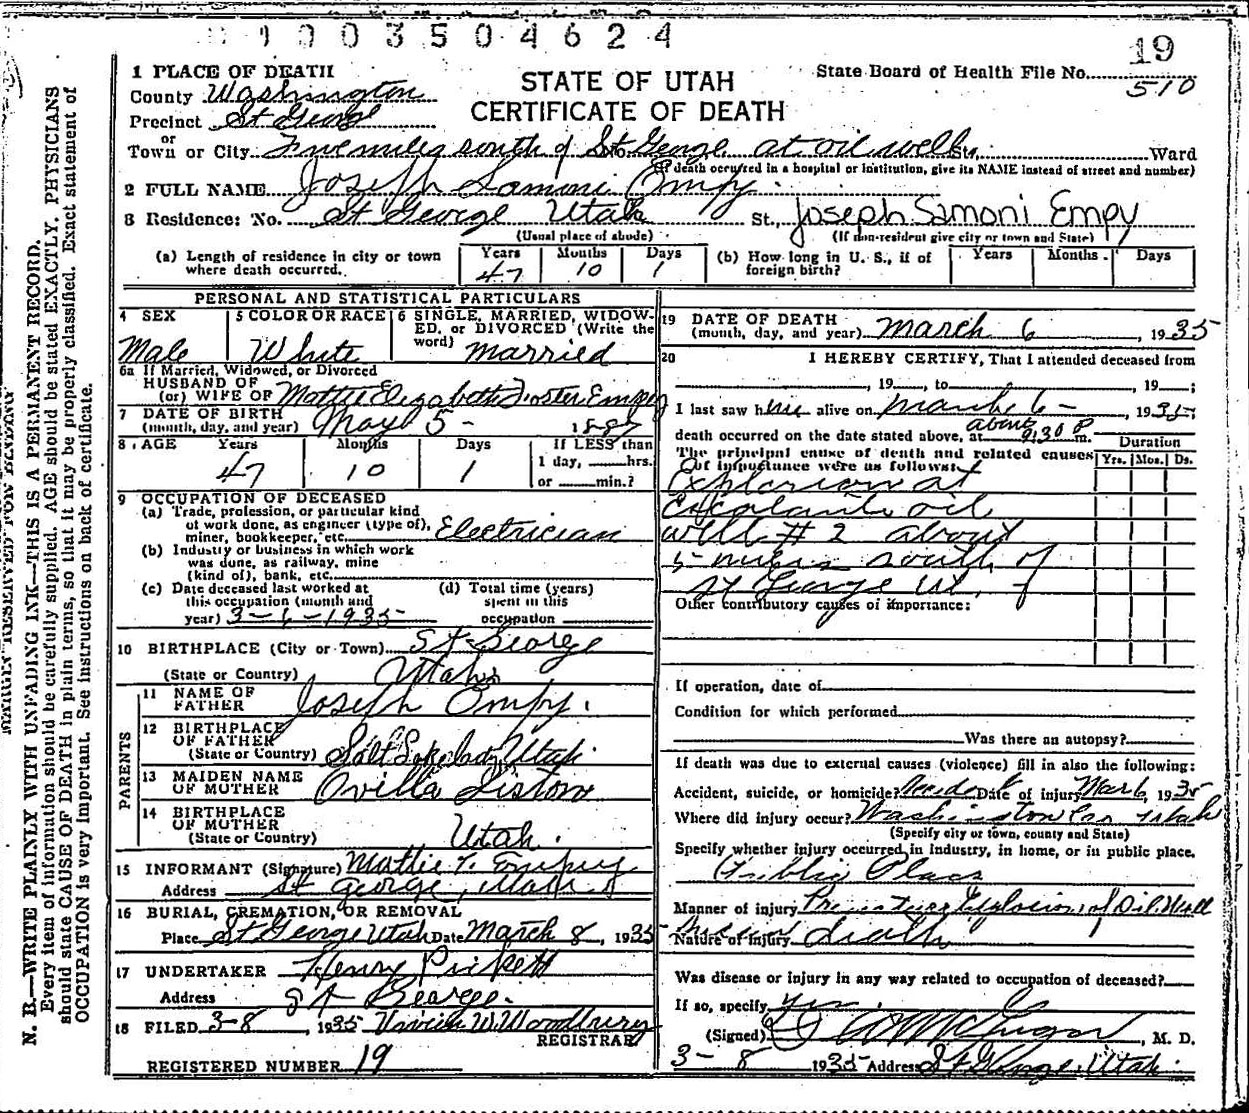 0 1 0 0 3 5 0 4 6 2 4
19
1 PLACE OF DEATH
STATE OF UTAH
CERTIFICATE OF DEATH
State Board of Health File No.
510
County Washington
Precinct St George
or
Town or City Five miles south of St George at oil well St., Ward
(If death occurred in a hospital or institution, give its NAME instead of street and number)
2 FULL NAME Joseph Samoni Empy
3 Residence: No. St George Utah St., Joseph Samoni Empy
(Usual place of abode) (If non-resident give city or town and State)
(a) Length of residence in city or town where death occurred. Years 47 Months 10 Days 1 (b) How long in U. S., if of foreign birth? Years Months Days
PERSONAL AND STATISTICAL PARTICULARS
4 SEX Male
5 COLOR OR RACE White
6 SINGLE, MARRIED, WIDOWED, or DIVORCED (Write the word) Married
6a If Married, Widowed, or Divorced
HUSBAND OF
(or) WIFE OF Mattie Elizabeth Foster Empy
7 DATE OF BIRTH
(month, day, and year) May 5 - 1887
8 AGE Years 47 Months 10 Days 1 If LESS than 1 day, hrs. or min.?
9 OCCUPATION OF DECEASED
(a) Trade, profession, or particular kind of work done, as engineer (type of), miner, bookkeeper, etc. Electrician
(b) Industry or business in which work was done, as railway, mine (kind of), bank, etc.
(c) Date deceased last worked at this occupation (month and year) 3-6-1935
(d) Total time (years) spent in this occupation
10 BIRTHPLACE (City or Town) St George
(State or Country) Utah
PARENTS
11 NAME OF FATHER Joseph Empy.
12 BIRTHPLACE OF FATHER
(State or Country) Salt Lake City Utah
13 MAIDEN NAME OF MOTHER Ovilla Liston
14 BIRTHPLACE OF MOTHER
(State or Country) Utah.
15 INFORMANT (Signature) Mattie F. Empy
Address St George, Utah
16 BURIAL, CREMATION, OR REMOVAL
Place St George Utah Date March 8, 1935
17 UNDERTAKER Henry Pickett
Address St George.
18 FILED 3-8, 1935 Vivian W. Woodbury
REGISTRAR
REGISTERED NUMBER 19
19 DATE OF DEATH
(month, day, and year) March 6, 1935
20 I HEREBY CERTIFY, That I attended deceased from
, 19 , to , 19 ;
I last saw him alive on March 6 -, 1935;
death occurred on the date stated above, at about 9:30 P m.
The principal cause of death and related causes of importance were as follows:
Duration
Yrs. Mos. Ds.
Explosion at
Escalante oil
well # 2 about
5 miles south of
St George Ut.
Other contributory causes of importance:
If operation, date of
Condition for which performed
Was there an autopsy?
If death was due to external causes (violence) fill in also the following:
Accident, suicide, or homicide? Accident Date of injury Mar 6, 1935
Where did injury occur? Washington Co. Utah
(Specify city or town, county and State)
Specify whether injury occurred in industry, in home, or in public place.
Public Place
Manner of injury Premature Explosion of Oil Well
Nature of injury death
Was disease or injury in any way related to occupation of deceased?
If so, specify yes.
(Signed) McGregor, M. D.
3-8 1935 Address St George, Utah.
N. B.—WRITE PLAINLY WITH UNFADING INK—THIS IS A PERMANENT RECORD.
Every item of information should be carefully supplied. AGE should be stated EXACTLY. PHYSICIANS
should state CAUSE OF DEATH in plain terms, so that it may be properly classified. Exact statement of
OCCUPATION is very important. See instructions on back of certificate.
MARGIN RESERVED FOR BINDING